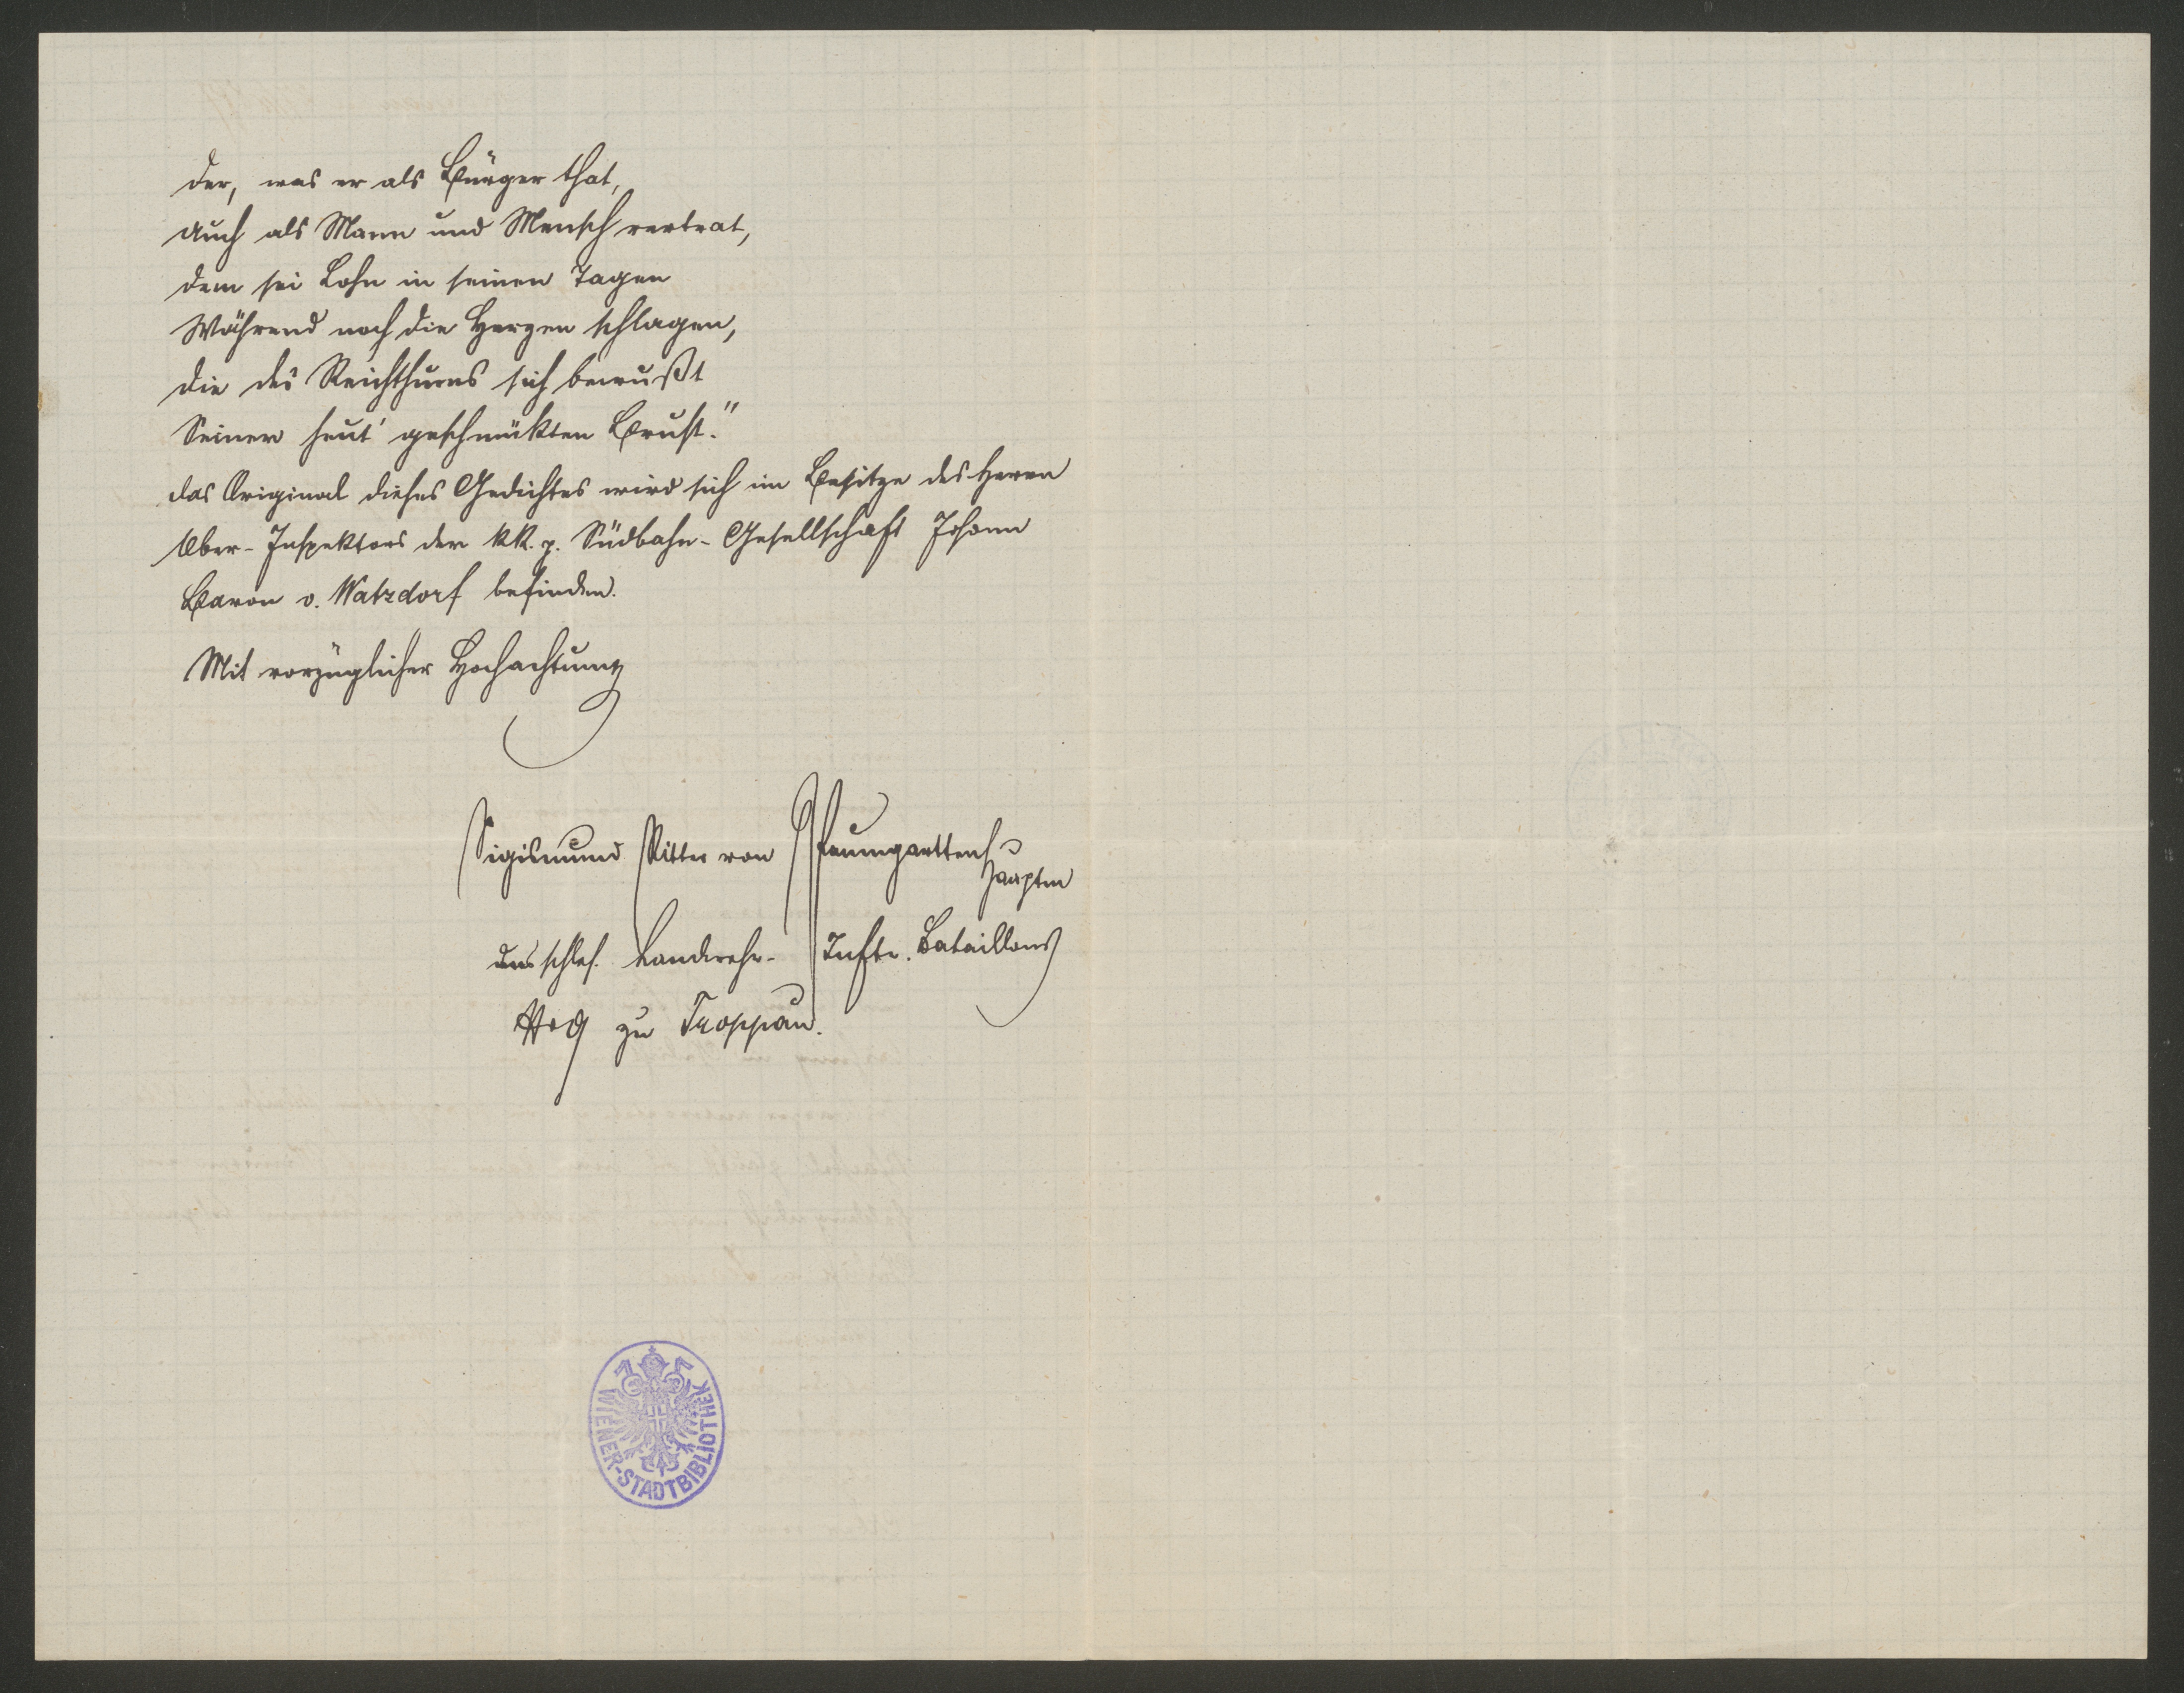 der, was er als Bürger that,
auch als Mann und Mensch vertrat,
dem sei Lohn in seinen Tagen
Während noch die Herzen schlagen,
die des Reichthums sich bewußt
Seiner heut' geschmükten Brust."
das Original dieses Gedichtes wird sich im Besitze des Herrn
Ober-Inspektors der kk. p. Südbahn-Gesellschaft Johann
Baron v. Watzdorf befinden.
Mit vorzüglicher Hochachtung
Sigismund Ritter von Pflaumgartten
Hauptm
des schles. Landwehr- Inftr. Bataillons
No 9 zu Troppau.
WIENER-STADTBIBLIOTHEK